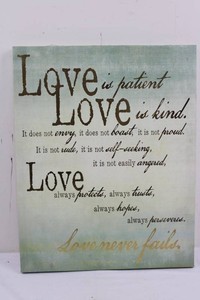 Love is patient
Love is kind.
It does not envy, it does not boast, it is not proud.
It is not rude, it is not self-seeking,
it is not easily angered,
Love
always protects, always trusts,
always hopes,
always perseveres.
Love never fails.